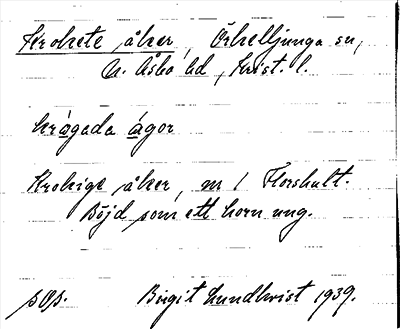 Krokete åker, Örkelljunga sn,
N. Åsbo hd, Krist. l.
krågada ágor
Krokige åker, m / Florshult.
Böjd som ett horn ung.
sOs. Birgit Lundkvist 1939.